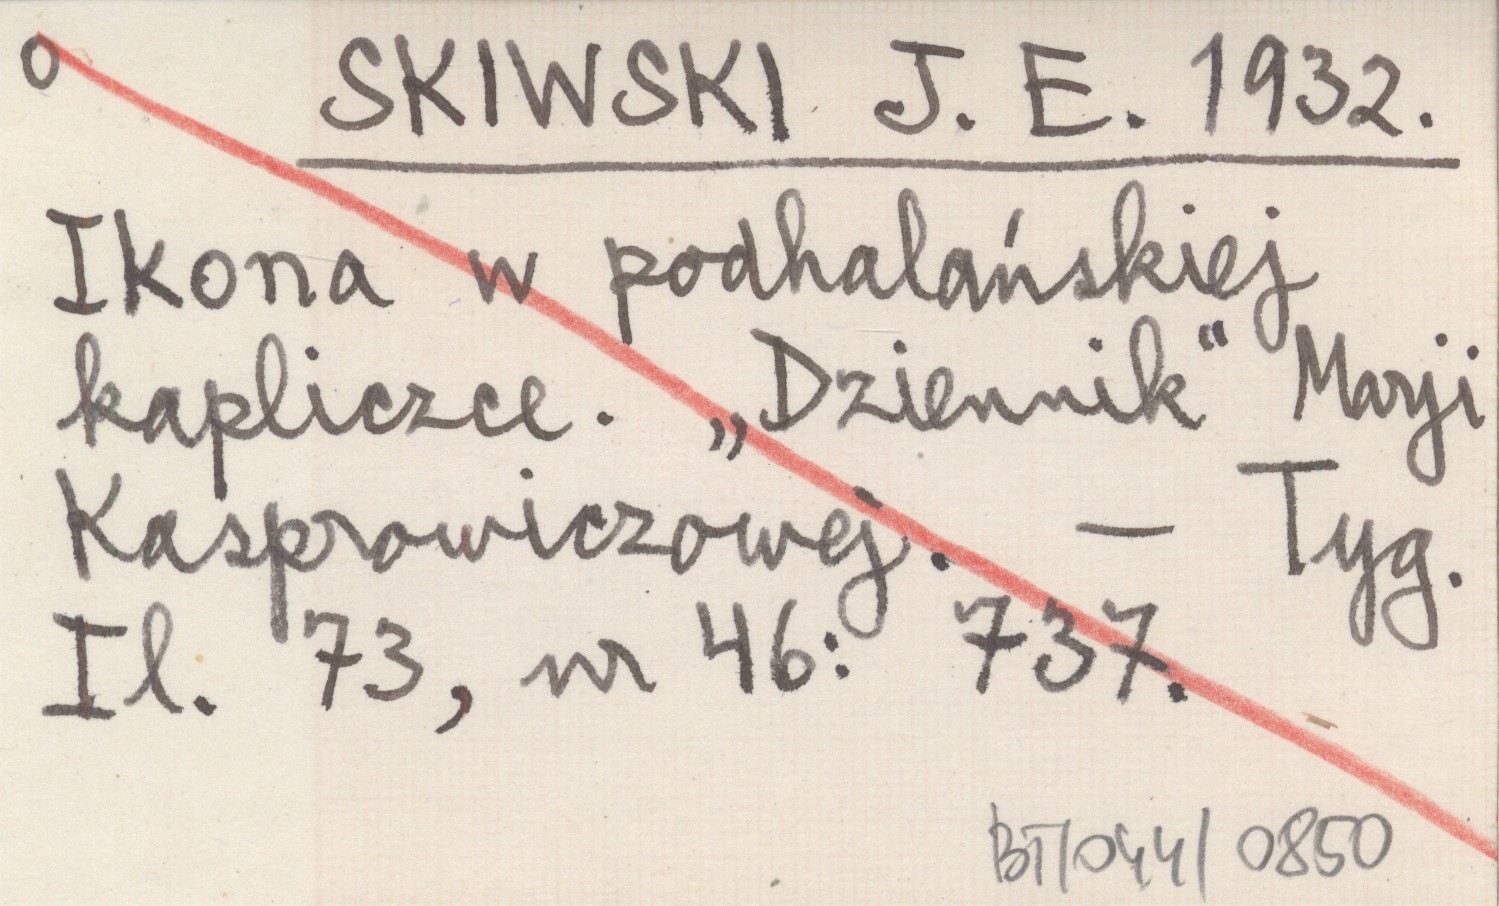 o SKIWSKI J. E. 1932.
Ikona w podhalańskiej
kapliczce. „Dziennik“ Marji
Kasprowiczowej. — Tyg.
Il. 73, nr 46: 737.
BT/044/ 0850